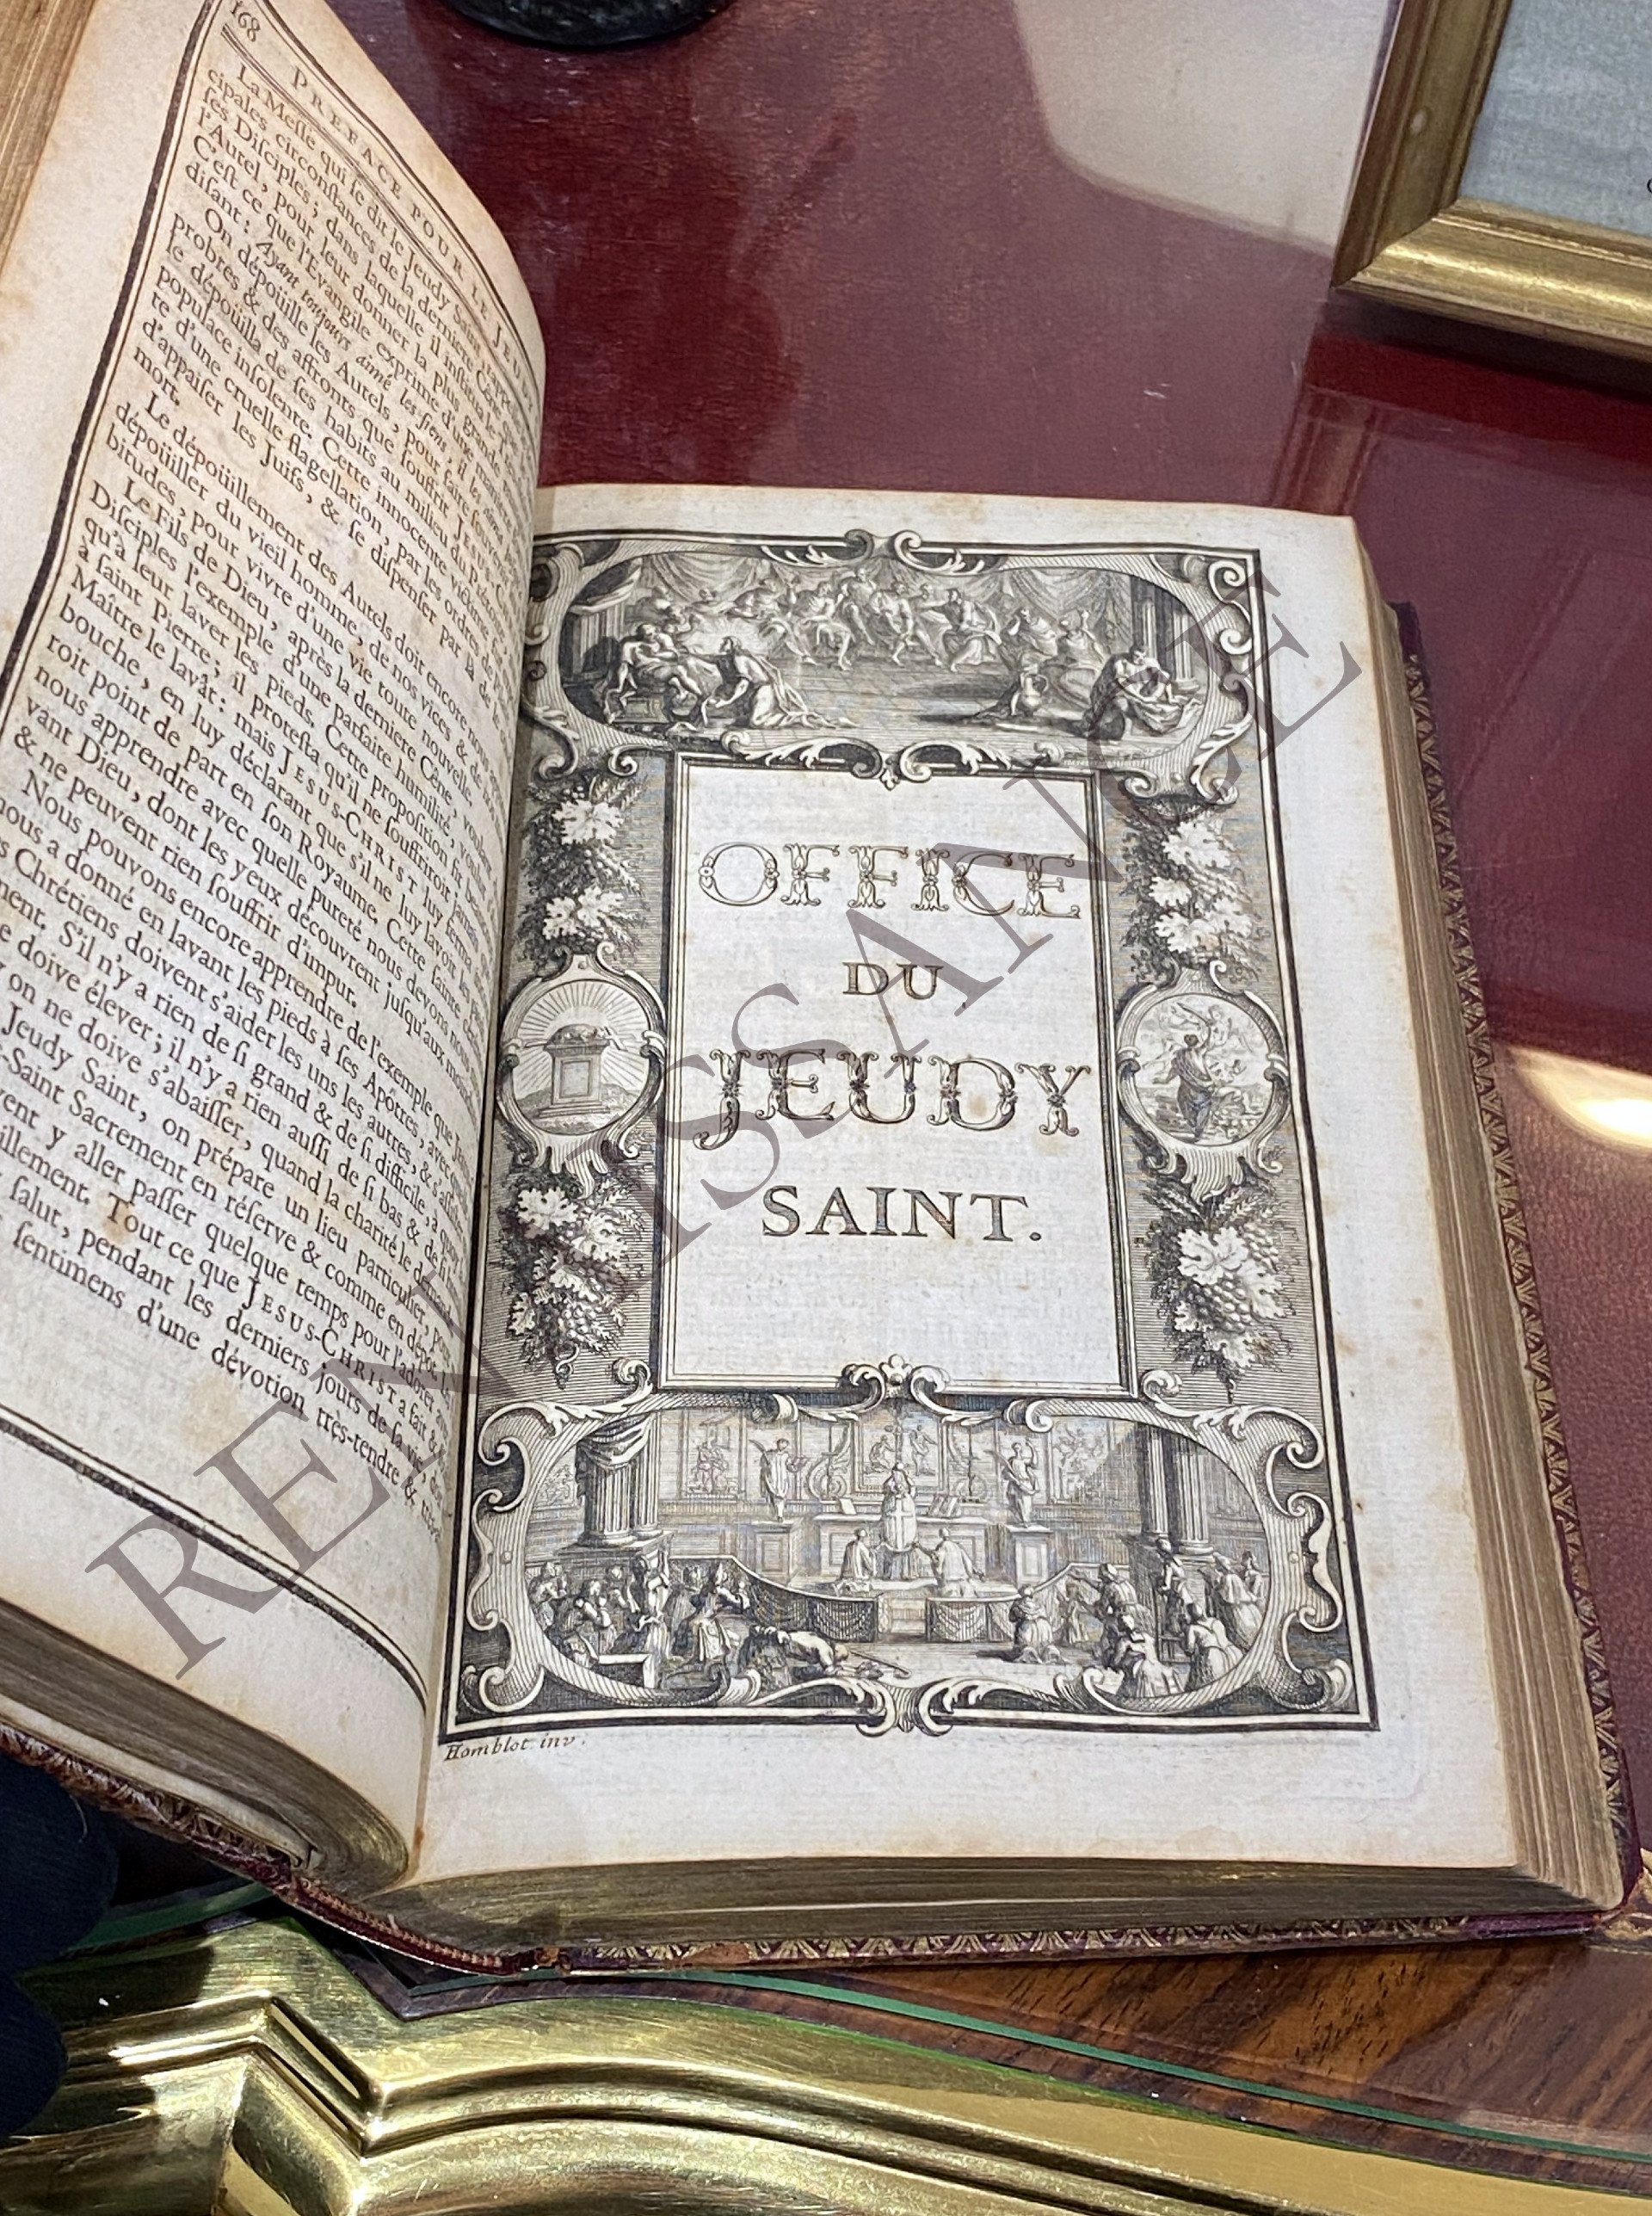 168 PREFACE POUR LE JEUDY
La Messe qui se dit le Jeudy Saint,
cipales circonstances de la derniere Cêne
ses Disciples; dans laquelle il institua le
l'Autel, pour leur donner la plus grande
C'est ce que l'Evangile exprime d'une maniere
disant: Ayant toujours aimé les siens, il les aima
On dépoüille les Autels, pour faire
probres & des affronts que souffrit JESUS-
le dépoüilla de ses habits au milieu du Prétoire
populace insolente. Cette innocente victime
re d'une cruelle flagellation, par les ordres de
d'appaiser les Juifs, & se dispenser par là de le
mort.
Le dépoüillement des Autels doit encore nous
dépoüiller du vieil homme, de nos vices & de
bitudes, pour vivre d'une vie toute nouvelle.
Le Fils de Dieu, après la derniere Cêne, voulant
Disciples l'exemple d'une parfaite humilité,
qu'à leur laver les pieds. Cette proposition fit
à saint Pierre; il protesta qu'il ne souffriroit jamais
Maître le lavât: mais JESUS-CHRIST luy ferma
bouche, en luy déclarant que s'il ne luy lavoit les
roit point de part en son Royaume. Cette sainte
nous apprendre avec quelle pureté nous devons
vant Dieu, dont les yeux découvrent jusqu'aux
& ne peuvent rien souffrir d'impur.
Nous pouvons encore apprendre de l'exemple que
nous a donné en lavant les pieds à ses Apôtres,
Chrétiens doivent s'aider les uns les autres, &
ment. S'il n'y a rien de si grand & de si difficile, à
doive élever; il n'y a rien aussi de si bas & de si
on ne doive s'abaisser, quand la charité le
Jeudy Saint, on prépare un lieu particulier, pour
Saint Sacrement en réserve & comme en dépôt.
y aller passer quelque temps pour l'adorer
Tout ce que JESUS-CHRIST a fait &
salut, pendant les derniers jours de sa vie,
sentimens d'une dévotion très-tendre &
OFFICE
DU
JEUDY
SAINT.
Homblot inv.
RENAISSANCE